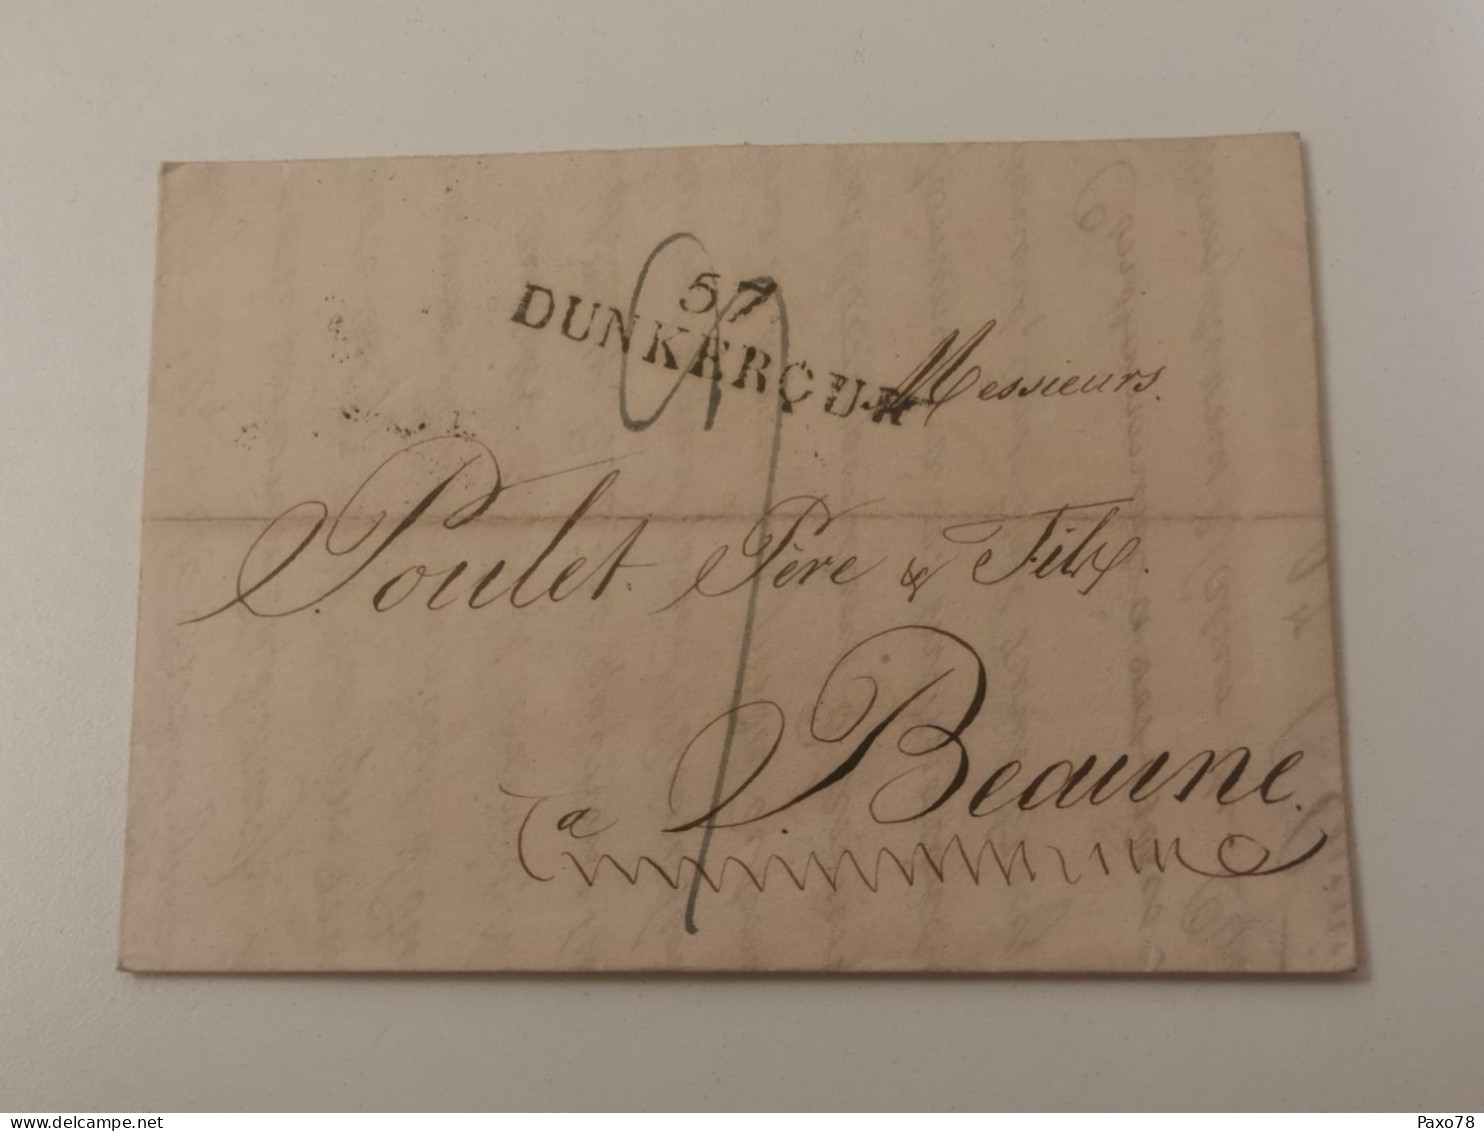 57
DUNKERQUE
Messieurs.
Poulet Père & Fils.
à Beaune.
www.delcampe.net
Paxo78